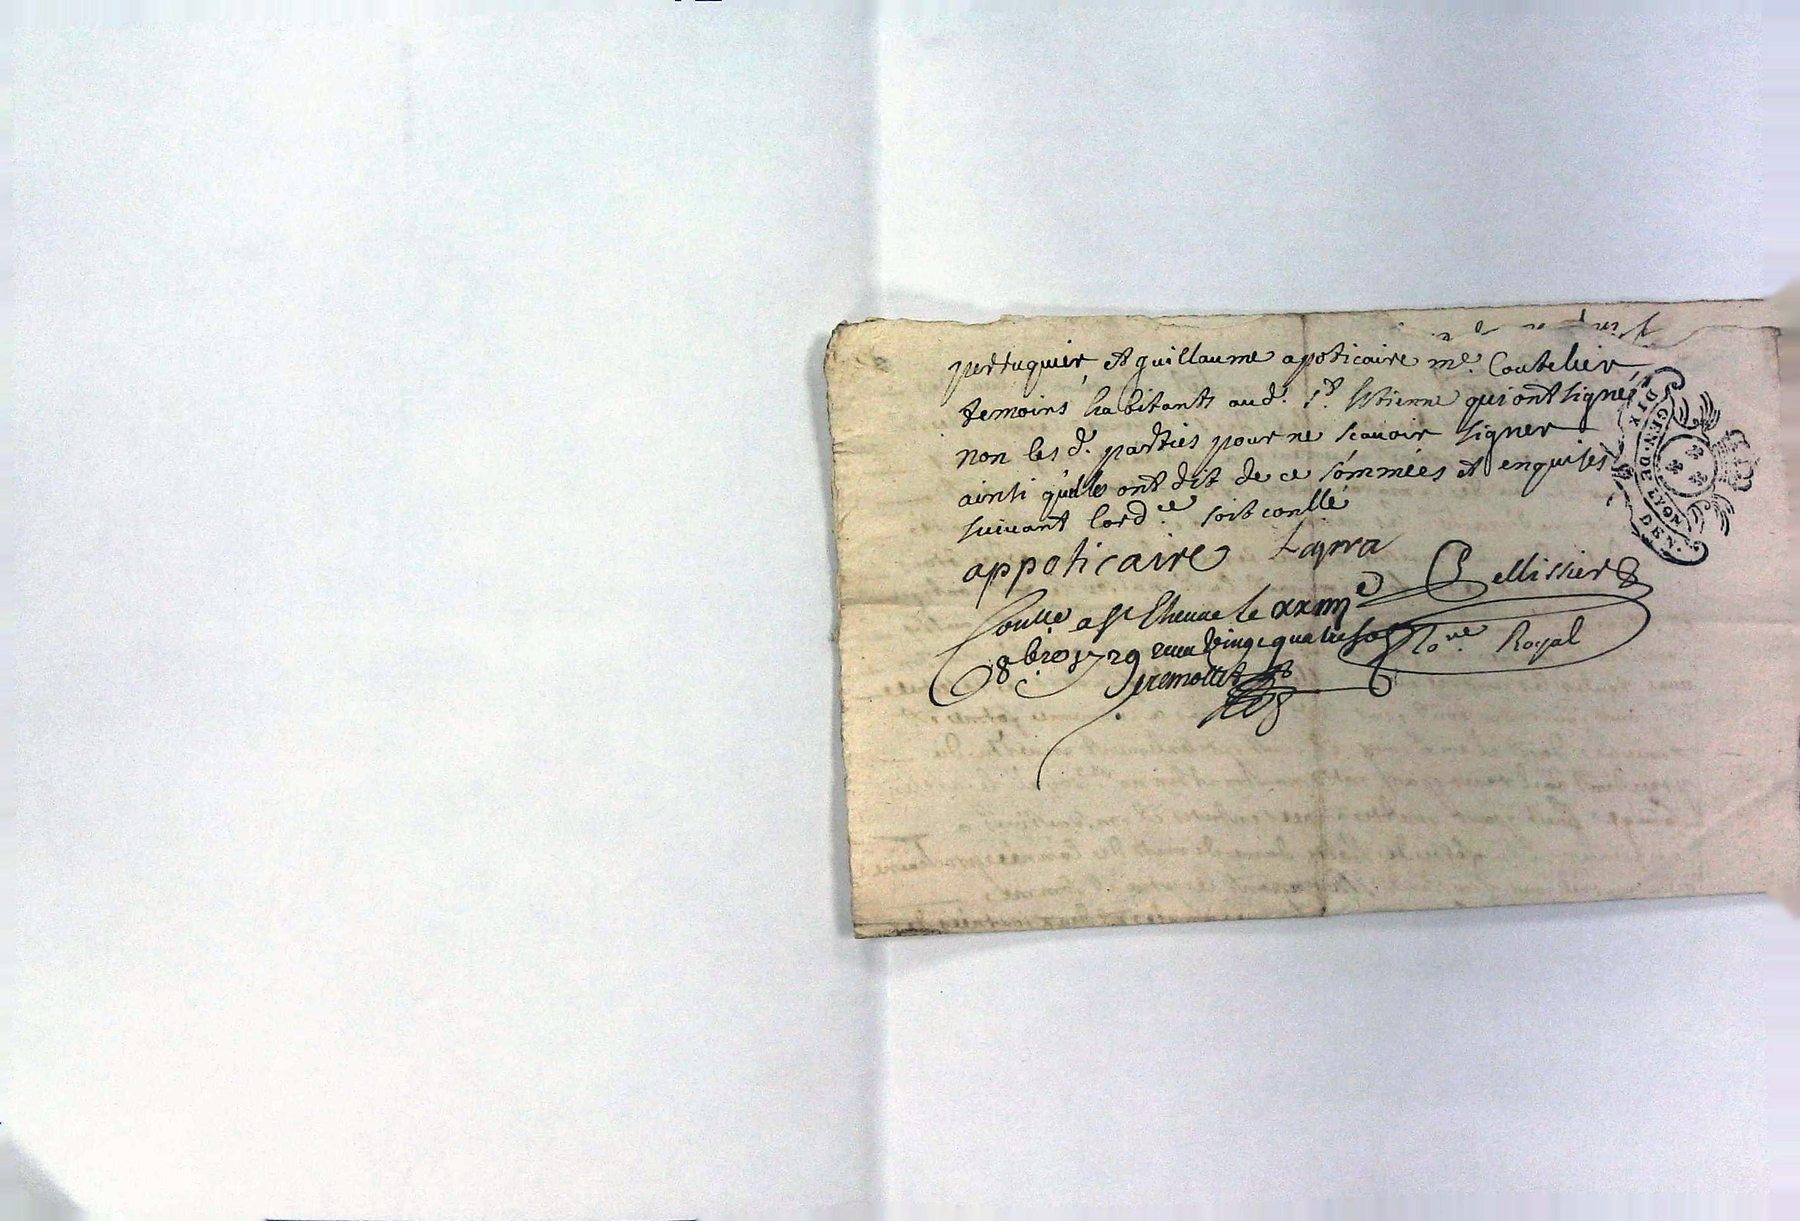 perruquier, et guillaume apoticaire me. Coutelier,
temoins habitants aud. St. Estienne qui ont signés
non les d. parties pour ne scavoir signer
ainsi quelles ont dit de ce sommées et enquises
suivant lordce soit conllé
appoticaire Layra
Pellissier
Conlle a St Etienne le xxiiije
8bre 1729 vingt quatre sols
Nore Royal
DIX DEN.
GEN. DE LYON